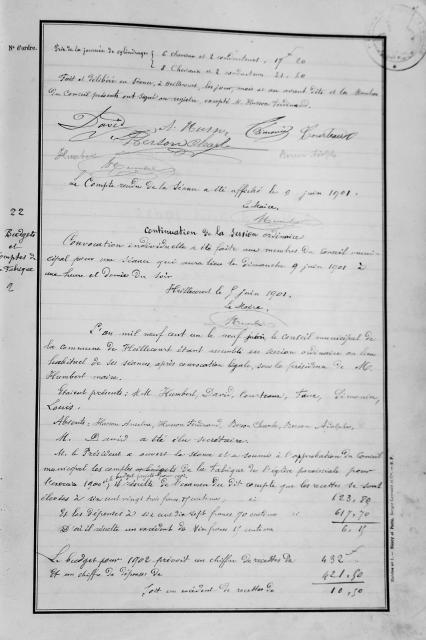 N° d'ordre.
Prix de la journée de cylindrage { 6 chevaux et 2 conducteurs. 17 20
8 chevaux et 2 conducteurs. 21. 20
Fait et délibéré en séance, à Huillecourt, les jour, mois et an avant dits et les membres
du Conseil présents ont signé au registre, excepté M. Husson Ferdinand.
David A. Husson Simonin Courteaux
Herson Charles
Humbert
Le Compte rendu de la séance a été affiché le 9 juin 1901.
Le Maire,
Humbert
22
Budgets
et
Comptes de
la Fabrique
2
Continuation de la Session ordinaire
Convocation individuelle a été faite aux membres du Conseil muni-
cipal pour une séance qui aura lieu le dimanche 9 juin 1901 à
une heure et demie du soir
Huillecourt le 5 juin 1901.
Le Maire,
Humbert
L'an mil neuf cent un le neuf juin le conseil municipal de
la commune de Huillecourt étant assemblé en session ordinaire au lieu
habituel de ses séances après convocation légale, sous la présidence de M.
Humbert maire.
Etaient présents: M.M. Humbert, David, Courteaux, Simonin,
Louis.
Absents: Husson Ferdinand,
M. David a été élu secrétaire.
M. le Président a ouvert la séance et a soumis à l'approbation du Conseil
municipal les comptes et budgets de la Fabrique de l'église paroissiale pour
l'exercice 1900; il résulte de l'examen du dit compte que les recettes se sont
élevées à six cent vingt trois francs centimes, ci 623.89
Et les dépenses à six cent dix sept francs 70 centimes ci 617,70
D'où il résulte un excédent de six francs centimes 6.
Le budget pour 1902 prévoit un chiffre de recettes de 432
Et un chiffre de dépenses de 421,50
Soit un excédent de recettes de 10,50